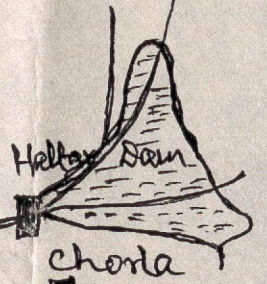 Haltar Dam
Chorla